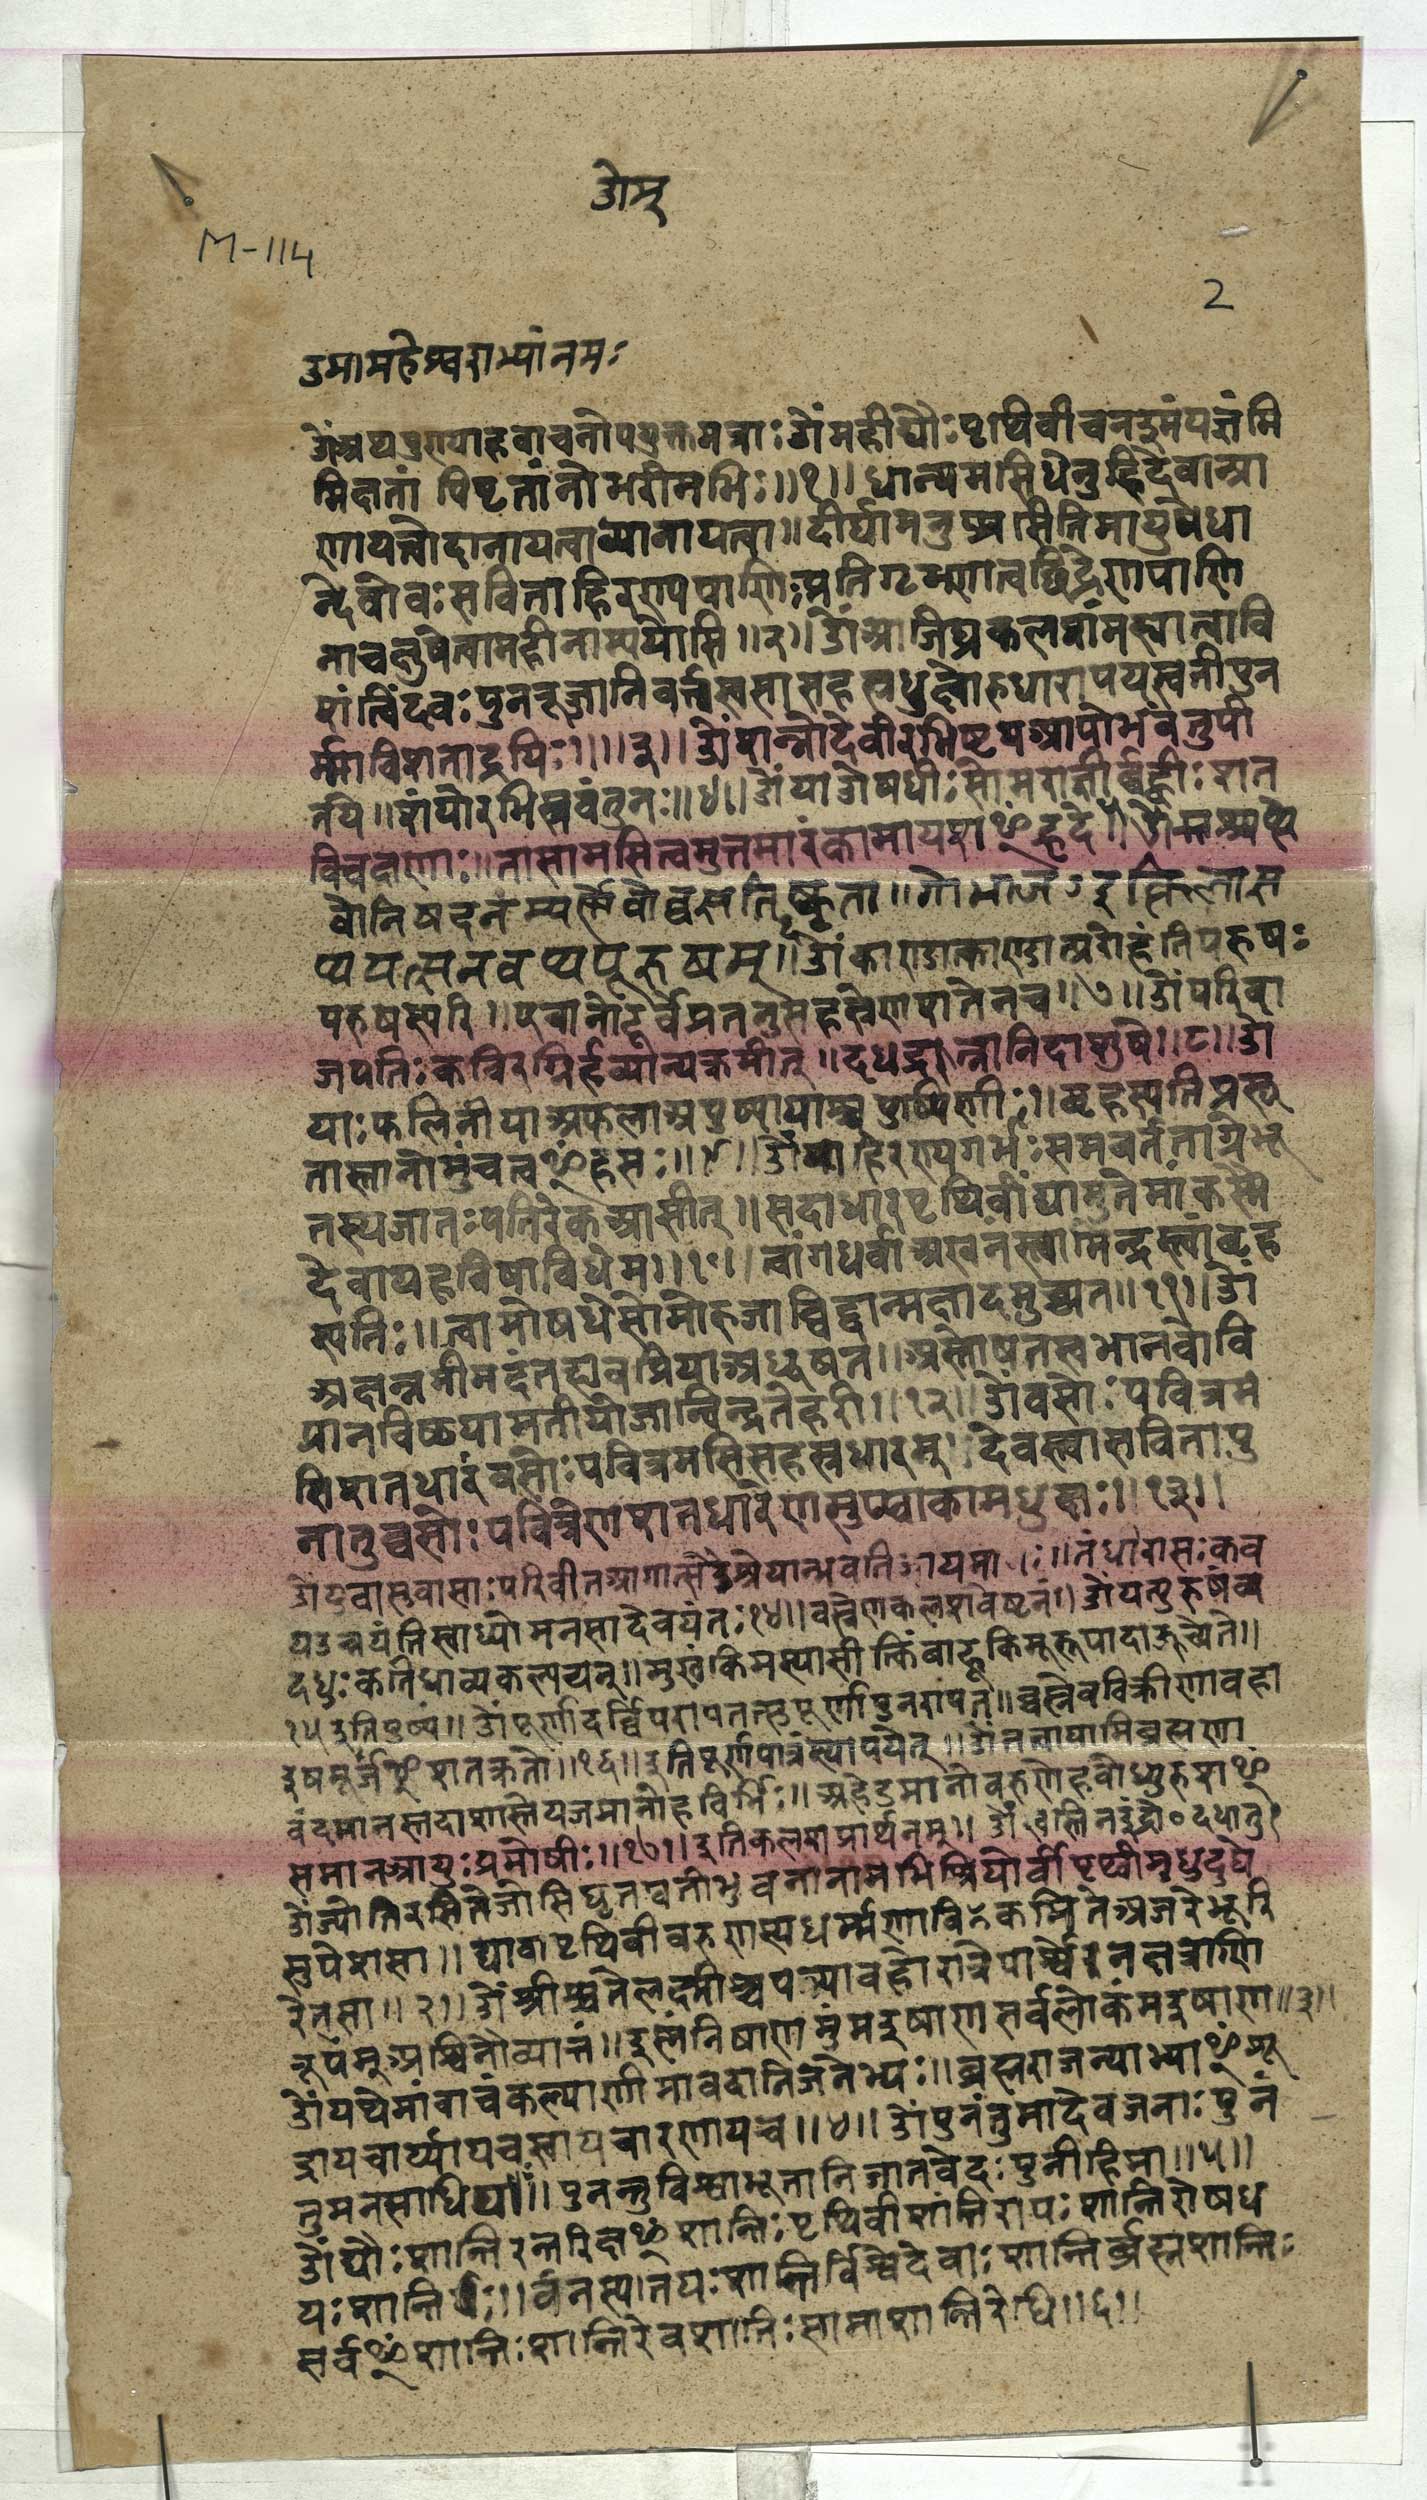 ओम्
M-114
2
उमामहेश्वराभ्यांनमः
ओंअथपुण्याहवाचनोपयुक्तमन्त्राः ओंमहीद्यौःपृथिवीचनइमंयज्ञंमि
मिक्षतां पिपृतांनोभरीमभिः॥१॥ धान्यमसिधेनुहिदेवान्प्रा
णायत्वोदानायत्वाव्यानायत्वा॥दीर्घामनुप्रसितिमायुषेधा
न्देवोवःसविताहिरण्यपाणिःप्रतिगृभ्णात्वच्छिद्रेणपाणि
नाचक्षुषेत्वामहीनाम्पयोसि॥२॥ओंआजिघ्रकलशंमह्यात्वावि
शंत्विंदवः पुनरूर्जानिवर्त्तस्वसासहस्रधुक्ष्वोरुधारापयस्वतीपुन
र्म्माविशताद्रयिः॥॥३॥ओंशन्नोदेवीरभिष्टयआपोभवंतुपी
तये॥शंयोरभिस्रवंतुनः॥४॥ओंयाओषधीःसोमराज्ञीर्बह्वीःशत
विचक्षणाः॥तासामसित्वमुत्तमारंकामायशंहृदे॥ओंअश्वत्थे
वोनिषदनंम्पर्णेवोव्वसतिष्कृता॥गोभाजऽइत्किलास
थयत्सनवथपूरुषम्॥ओंकाण्डात्काण्डात्प्ररोहंतिपरुषः
परुषस्परि॥एवानोदूर्वेप्रतनुसहस्रेणशतेनच॥७॥ओंपरिवा
जपतिःकविरग्निर्हव्यान्यक्रमीत्॥दधद्रत्नानिदाशुषे॥८॥ओं
याःफलिनीर्याअफलाअपुष्पायाश्चपुष्पिणीः॥बृहस्पतिप्रसू
तास्तानोमुंचत्वꣳहसः॥९॥ओंहिरण्यगर्भःसमवर्तताग्रेभू
तस्यजातःपतिरेकआसीत्॥सदाधारपृथिवींद्यामुतेमांकस्मै
देवायहविषाविधेम॥१०॥त्वांगंधर्वाअखनंस्त्वामिन्द्रस्त्वांबृह
स्पतिः॥त्वामोषधेसोमोराजाविद्वान्यक्ष्मादमुच्यत॥११॥ओं
अक्षन्नमीमदंतह्यवप्रियाअधूषत॥अस्तोषतस्वभानवोवि
प्रानविष्ठयामतीयोजान्विन्द्रतेहरी॥१२॥ओंवसोःपवित्रम
सिशतधारंवसोःपवित्रमसिसहस्रधारम् देवस्त्वासवितापु
नातुव्वसोःपवित्रेणशतधारेणसुप्वाकामधुक्षः॥१३॥
ओंयुवासुवासाःपरिवीतआगात्सउश्रेयान्भवतिजायमानः॥तंधीरासःकव
यउन्नयंतिस्वाध्योमनसादेवयंतः१४॥वस्त्रेणकलशवेष्टनं॥ओंयत्पुरुषंव्य
दधुःकतिधाव्यकल्पयन्॥मुखंकिमस्यासीत्किंबाहूकिमूरूपादाउच्येते॥
१५इतिपुष्पं॥ओंपूर्णादर्व्विपरापतसुपूर्णापुनरापत॥व्वस्नेवविक्रीणावहा
इषमूर्जꣳशतक्रतो॥१६॥इतिपूर्णपात्रंस्थापयेत्॥ओंतत्वायामिब्रह्मणा
वंदमानस्तदाशास्तेयजमानोहविर्भिः॥अहेडमानोवरुणेहबोध्युरुशꣳ
समानआयुःप्रमोषीः॥१७॥इतिकलशप्रार्थनम्॥ओंस्वस्तिनइंद्रो०दधातु१
ओंज्योतिरसितेजोसिघृतवतीभुवनानामभिश्रियोर्वीपृथ्वीमधुदुघे
सुपेशसा॥द्यावापृथिवीवरुणस्यधर्म्मणाविष्कभितेअजरेभूरि
रेतसा॥२॥ओंश्रीश्चतेलक्ष्मीश्चपत्न्यावहोरात्रेपार्श्वेनक्षत्राणि
रूपमश्विनौव्यात्तं॥इष्णंनिषाणामुंमइषाणसर्वलोकंमइषाण॥३॥
ओंयथेमांवाचंकल्याणीमावदानिजनेभ्यः॥ब्रह्मराजन्याभ्याꣳशू
द्रायचार्य्यायचस्वायचारणायच॥४॥ओंपुनंतुमादेवजनाःपुनं
तुमनसाधियः॥पुनन्तुविश्वाभूतानिजातवेदःपुनीहिमा॥५॥
ओंद्यौःशान्तिरन्तरिक्षꣳशान्तिःपृथिवीशांतिरापःशान्तिरोषध
यःशान्तिः॥वनस्पतयःशान्तिर्विश्वेदेवाःशान्तिर्ब्रह्मशान्तिः
सर्वꣳशान्तिःशान्तिरेवशान्तिःसामाशान्तिरेधि॥६॥